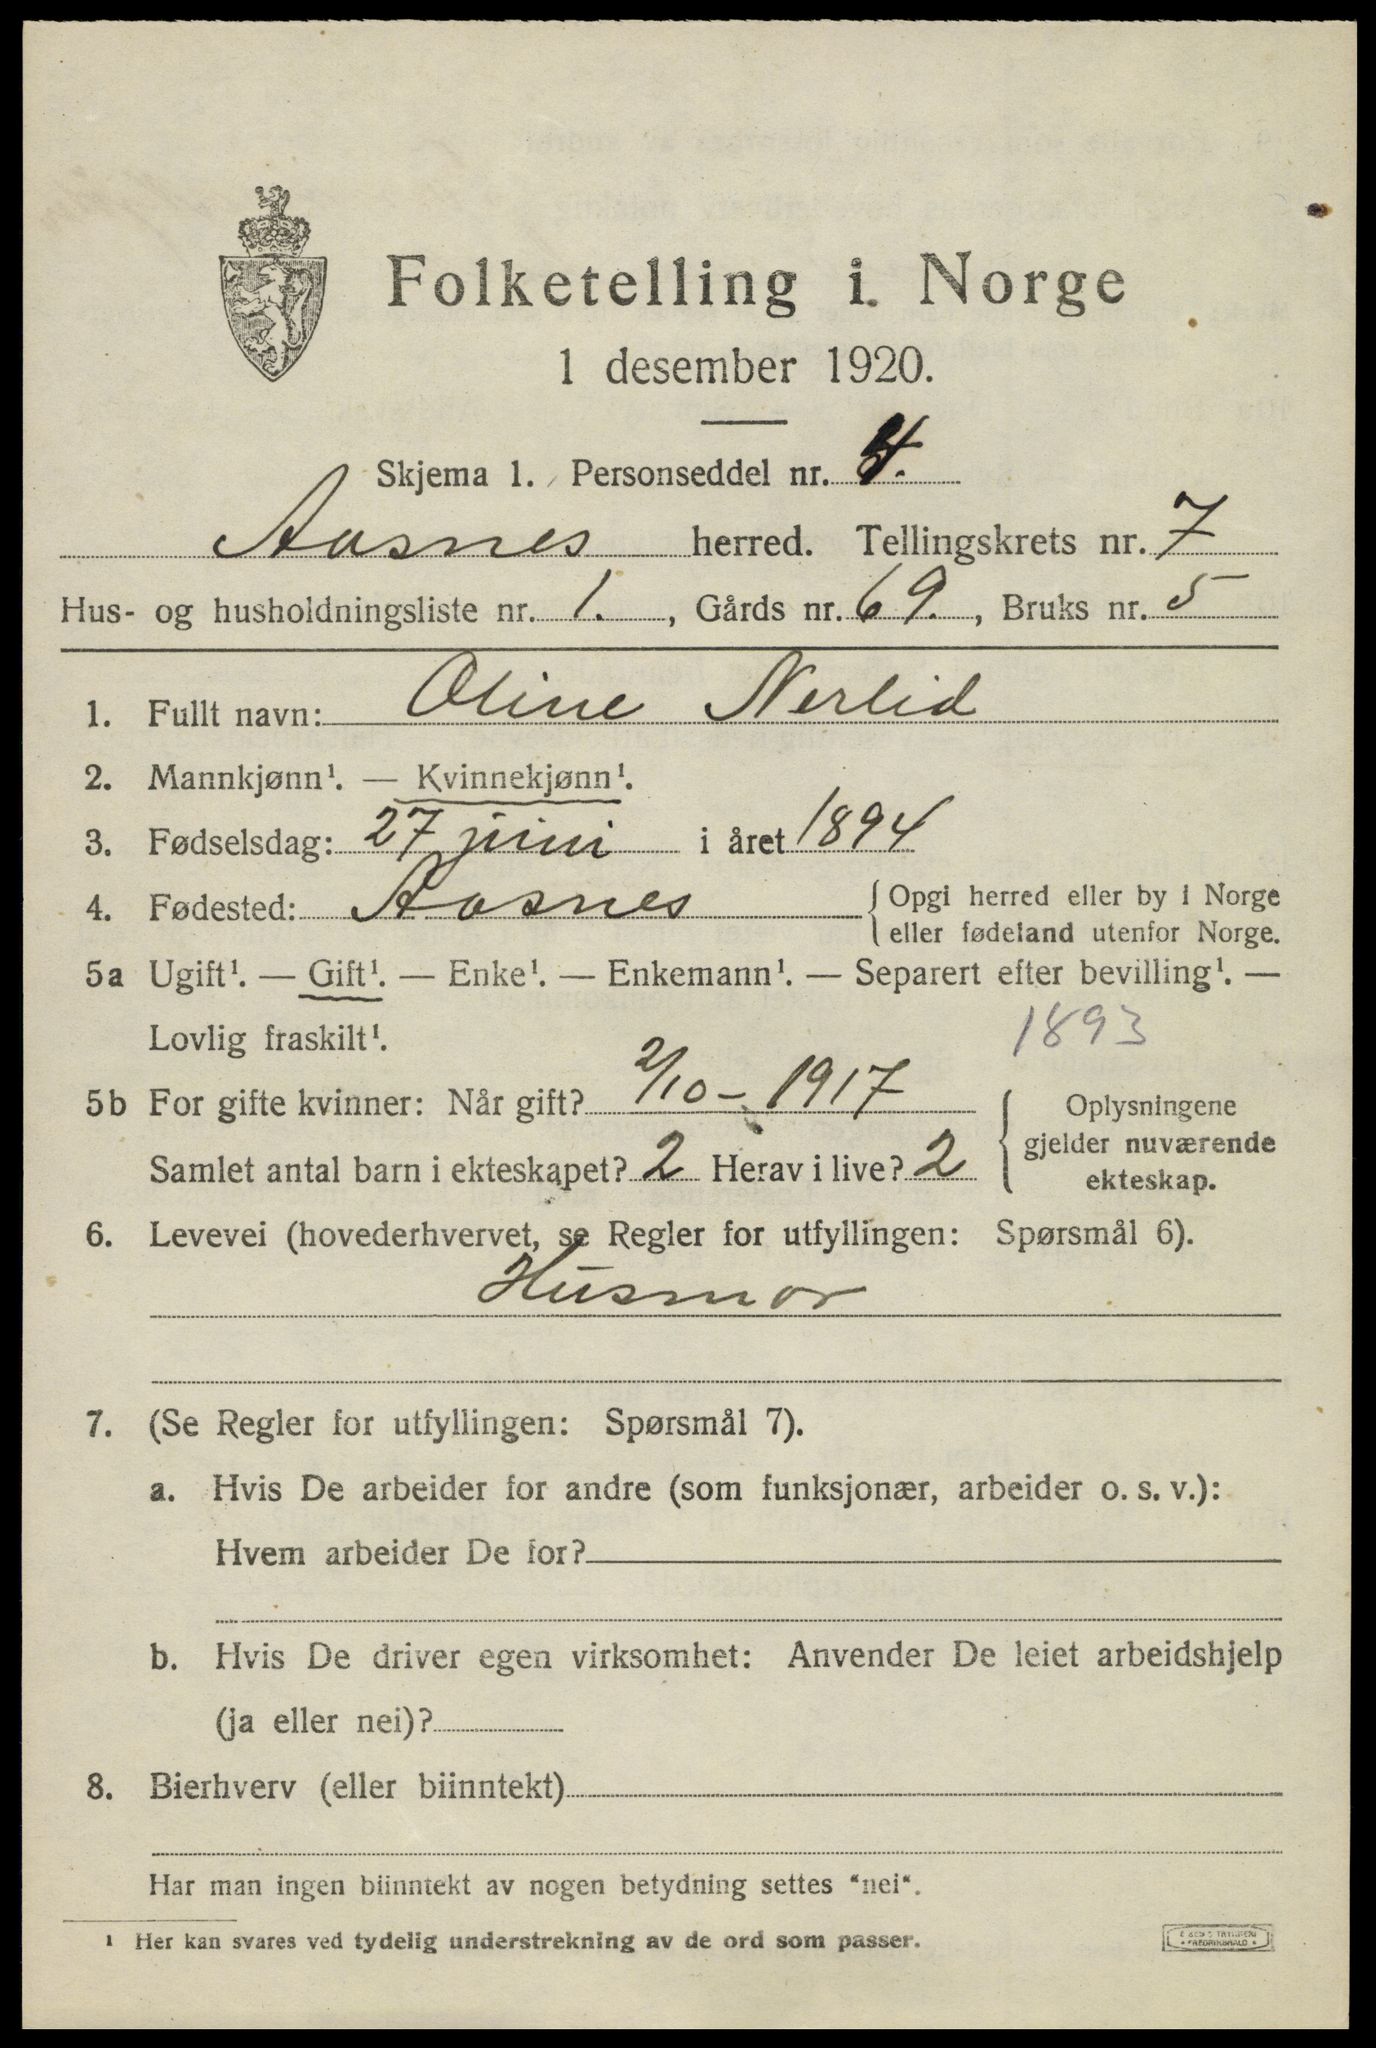 Folketelling i Norge
1 desember 1920.
Skjema 1. Personseddel nr. 4.
Aasnes herred. Tellingskrets nr. 7
Hus- og husholdningsliste nr. 1. , Gårds nr. 69. , Bruks nr. 5
1. Fullt navn: Oline Nerlid
2. Mannkjønn¹. — Kvinnekjønn¹.
3. Fødselsdag: 27 juni i året 1894
4. Fødested: Aasnes { Opgi herred eller by i Norge
eller fødeland utenfor Norge.
5a Ugift¹. — Gift¹. — Enke¹. — Enkemann¹. — Separert efter bevilling¹. —
Lovlig fraskilt¹. 1893
5b For gifte kvinner: Når gift? 2/10 - 1917
Samlet antal barn i ekteskapet? 2 Herav i live? 2
{ Oplysningene
gjelder nuværende
ekteskap.
6. Levevei (hovederhvervet, se Regler for utfyllingen: Spørsmål 6).
Husmor
7. (Se Regler for utfyllingen: Spørsmål 7).
a. Hvis De arbeider for andre (som funksjonær, arbeider o. s. v.):
Hvem arbeider De for?
b. Hvis De driver egen virksomhet: Anvender De leiet arbeidshjelp
(ja eller nei)?
8. Bierhverv (eller biinntekt)
Har man ingen biinntekt av nogen betydning settes "nei".
¹ Her kan svares ved tydelig understrekning av de ord som passer.